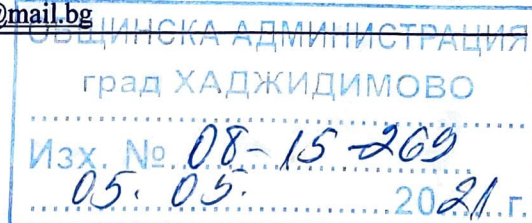 @mail.bg
ОБЩИНСКА АДМИНИСТРАЦИЯ
град ХАДЖИДИМОВО
Изх. № 08-15-269
05. 05. 2021 г.